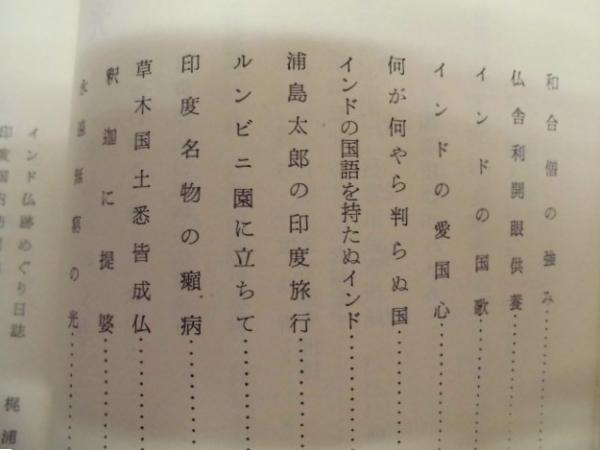 和合僧の強み
仏舎利開眼供養
インドの国歌
インドの愛国心
何が何やら判らぬ国
インドの国語を持たぬインド
浦島太郎の印度旅行
ルンビニ園に立ちて
印度名物の癩病
草木国土悉皆成仏
釈迦に提婆
の光
インド仏跡めぐり日誌
梶浦
印度国内